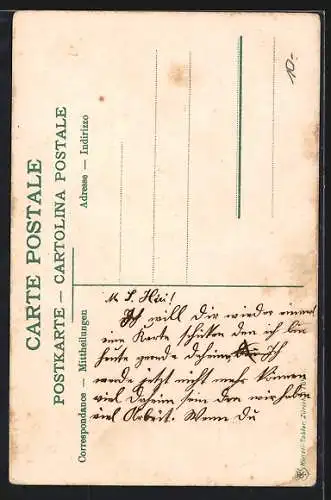 CARTE POSTALE
POSTKARTE – CARTOLINA POSTALE
Correspondance – Mittheilungen
Adresse – Indirizzo
10.-
M. L. Hēi!
Ich will Dir wieder einmal
eine Karte schiken den ich bin
heute gerade daheim Ich
werde jetzt nicht mehr können
viel Daheim sein den wir haben
viel Arbeit. Wenn Du
Künzli-Tobler, Zürich